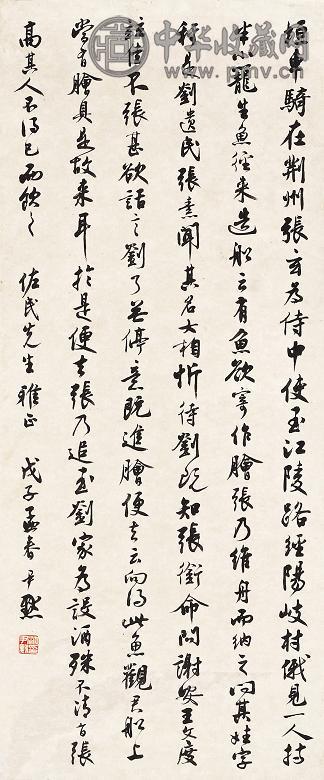 中华收藏网
桓車騎在荊州張玄為侍中使至江陵路經陽岐村俄見一人持
半小籠生魚徑來造船云有魚欲寄作膾張乃維舟而納之問其姓字
稱是劉遺民張素聞其名大相忻待劉既知張銜命問謝安王文度
並佳不張甚欲話言劉了無停意既進膾便去云向得此魚觀君船上
當有膾具是故來耳於是便去張乃追至劉家為設酒殊不清旨張
高其人不得已而飲之 佐民先生雅正 戊子孟春 尹默